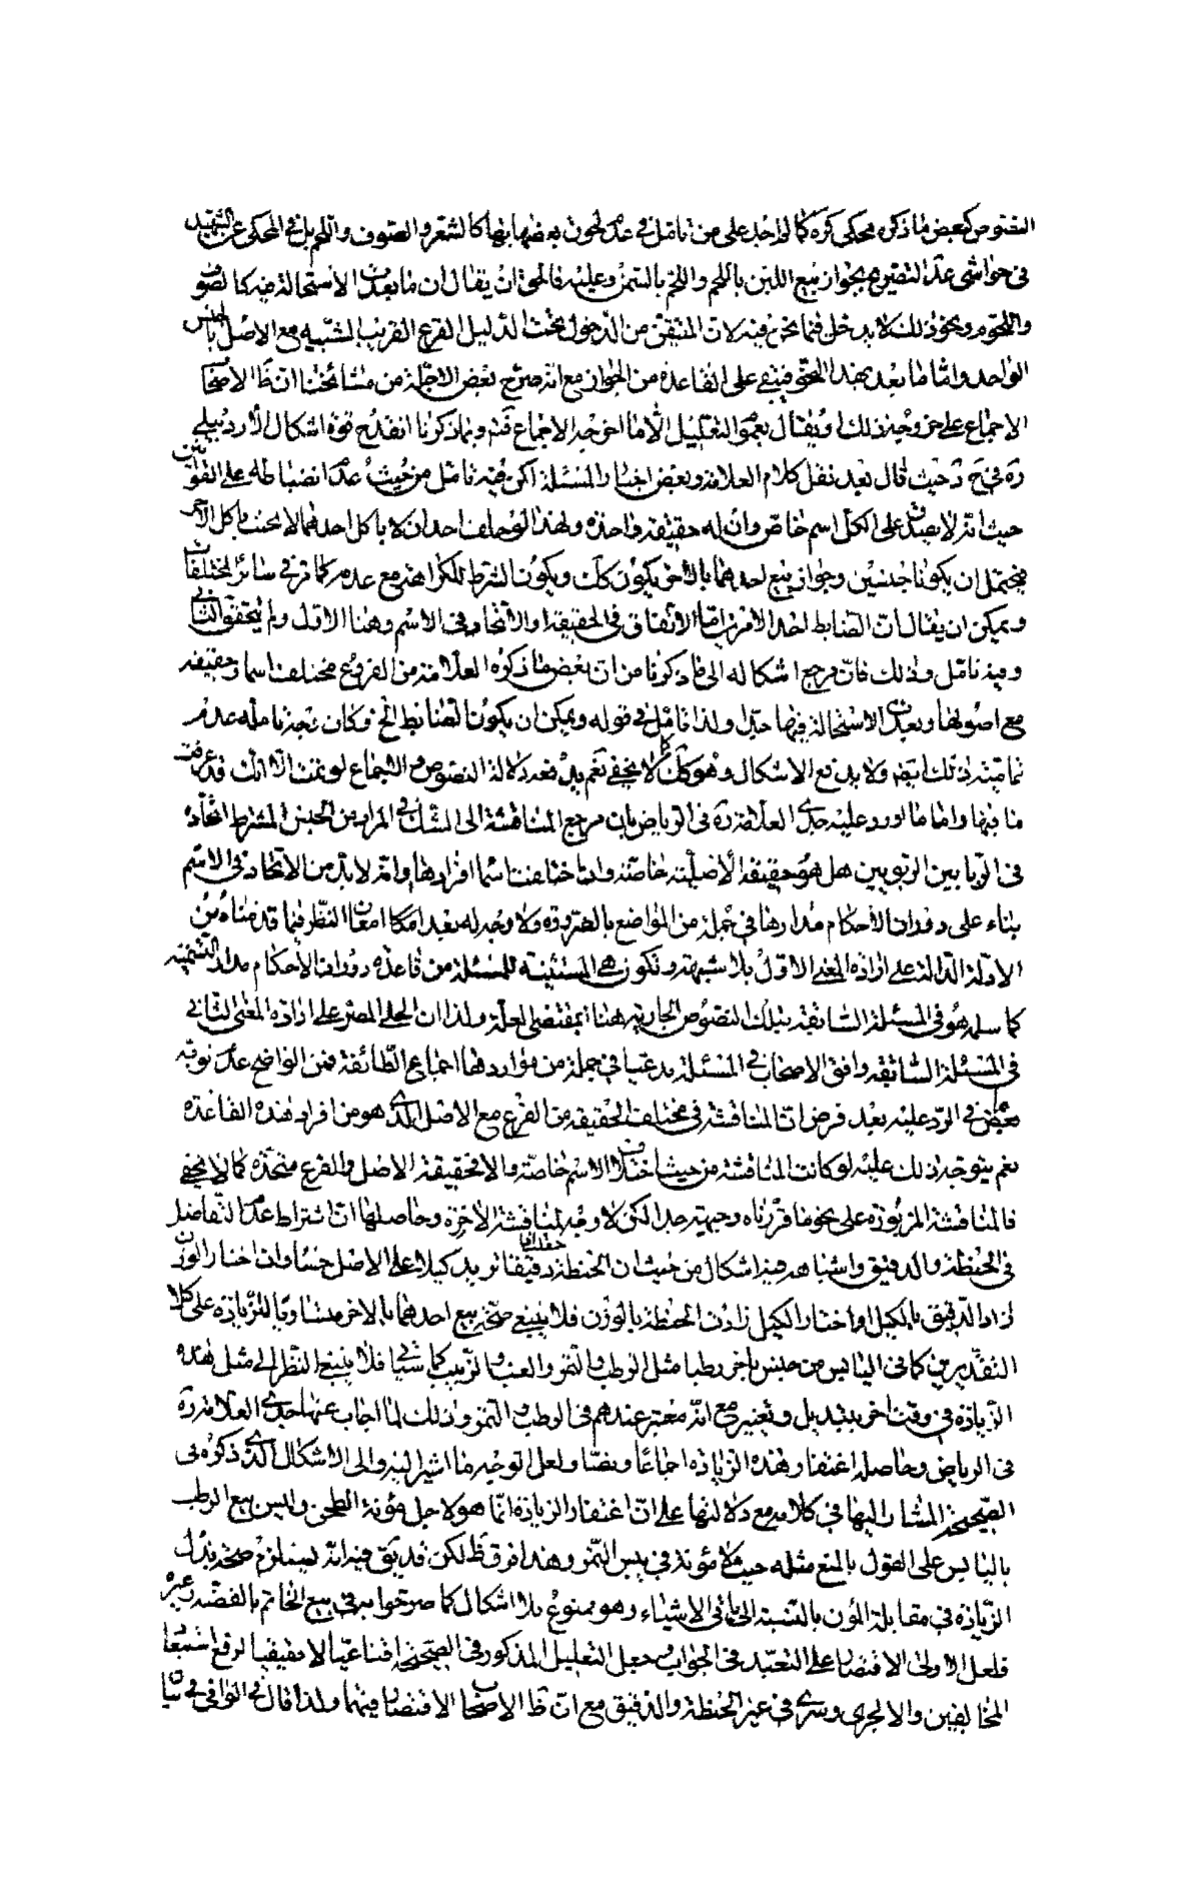 النصوص كبعض ما ذكره محكى كره كما لو احد على من تامل في عدم لحوق بعضها بها كالشعر والصوف واللحم بل في المحكى عن التمهيد
في حواشي عد التصريح بجواز بيع اللبن باللحم واللحم بالسمن وعليه فالحق ان يقال ان ما بعدت الاستحالة فيه كالصوف
واللحم ونحو ذلك لا يدخل فيما نحن فيه لان المتيقن من الدخول تحت الدليل الفرع القريب الشبيه مع الاصل بالجنس
الواحد واما ما بعد بهذا النحو فيبقى على القاعدة من الجواز مع انه صرح بعض الاجلة من مشائخنا ان ظ الاصحاب
الاجماع على وحينئذ لك او يقال بعموم التعليل الا ما اخرجه الاجماع فته وبما ذكرنا انقدح قوة اشكال الاردبيلي
ره في ح د حيث قال بعد نقل كلام العلامة وبعض اخبار المسئلة لكن فيه تامل من حيث عدم انضباطه على القوانين
حيث انه لا يصدق على الكل اسم خاص وان له حقيقة واحدة ولهذا لو حلف احد ان لا ياكل احدهما لا يحنث باكل الآخر
فيحتمل ان يكونا جنسين وجواز بيع احدهما بالآخر يكون كك ويكون الشرط للكراهة مع عدمه كما مر في سائر المختلفات
ويمكن ان يقال ان الضابط احد الامرين اما الاتفاق في الحقيقة او الاتحاد في الاسم وهنا الاول ولم يتحقق الثاني
وفيه تامل وذلك فان مرجع اشكاله الى ما ذكرنا من ان بعض ما ذكره العلامة من الفروع مختلف اسما وحقيقة
مع اصولها وبعدت الاستحالة فيها جدا ولذا تامل في قوله ويمكن ان يكون الضابط الخ وكان وجه تامله عدم
تمامية ذلك ايضا ولا يدفع الاشكال وهو كك كما لا يخفى نعم يدفعه دلالة النصوص والاجماع لو تمت الا انك قد عرفت
ما فيها واما ما اورد عليه جدي العلامة ره في الرياض بان مرجع المناقشة الى الشك في المراد من الجنس المشترط اتحاده
في الربا بين الربويين هل هو حقيقة الاصلية خاصة وان اختلفت اسما افرادها وانه لا بد من الاتحاد في الاسم
بناء على دوران الاحكام مدارها في جملة من المواضع بالضرورة ولا وجه له بعد امكان امعان النظر فيما قدمناه من
الادلة الدالة على ارادة المعنى الاول بلا شبهة وتكون هي المستثنية للمسئلة من قاعدة دوران الاحكام مدار التسمية
كما سلمه هو في المسئلة السابقة بتلك النصوص الجارية هنا بمقتضى العلة ولذا ان الحلي المصر على ارادة المعنى الثاني
في المسئلة السابقة وافق الاصحاب في المسئلة مدعيا في جملة من مواردها اجماع الطائفة فمن الواضح عدم توجه
بعض في الرد عليه بعد فرض ان المناقشة في مختلف الحقيقة من الفرع مع الاصل الذي هو من افراد هذه القاعدة
نعم يتوجه ذلك عليه لو كانت المناقشة من حيث اختلاف الاسم خاصة والا فحقيقة الاصل والفرع متحدة كما لا يخفى
فالمناقشة المزبورة على نحو ما قررناه وجيهة جدا لكن لا وجه لمناقشة الاخرة وحاصلها ان اشتراط عدم التفاضل
في الحنطة والدقيق واشباهه فيه اشكال من حيث ان الحنطة اذا جعلت دقيقا تزيد كيلا على الاصل حسا واذا اختار الوزن
زاد الدقيق بالكيل او اختار الكيل زادت الحنطة بالوزن فلا ينبغي صحة بيع احدهما بالاخر متساويا للزيادة على كلا
التقديرين كما في اليابس من جنس باخر رطبا مثل الرطب والتمر والعنب والزبيب كما سياتي فلا ينبغي النظر الى مثل هذه
الزيادة في وقت اخر بتبديل وتغيير مع انه معتبر عندهم في الرطب والتمر وذلك لما اجاب عنها جدي العلامة ره
في الرياض وحاصله اغتفار هذه الزيادة اجماعا ونصا ولعل الوجه ما اشير اليه والى الاشكال الذي ذكره في
الصحيحة المشار اليها في كلامه مع دلالتها على ان اغتفار الزيادة انما هو لاجل مؤنة الطحن وليس بيع الرطب
باليابس على القول بالمنع مثله حيث لا مؤنة في يبس التمر وهذا فرق ظ لكن قد يق فيه انه يستلزم صحة بذل
الزيادة في مقابلة المؤن بالنسبة الى باقي الاشياء وهو ممنوع بلا اشكال كما صرحوا به في بيع الخاتم بالفضة وغيره
فلعل الاولى الاقتصار على التعبد في الجواب وجعل التعليل المذكور في الصحيحة اقناعيا لا حقيقيا لرفع استبعاد
المخالفين والا لجرى وسرى في غير الحنطة والدقيق مع ان ظ الاصحاب الاقتصار فيهما ولذا قال في الوافي في بيان